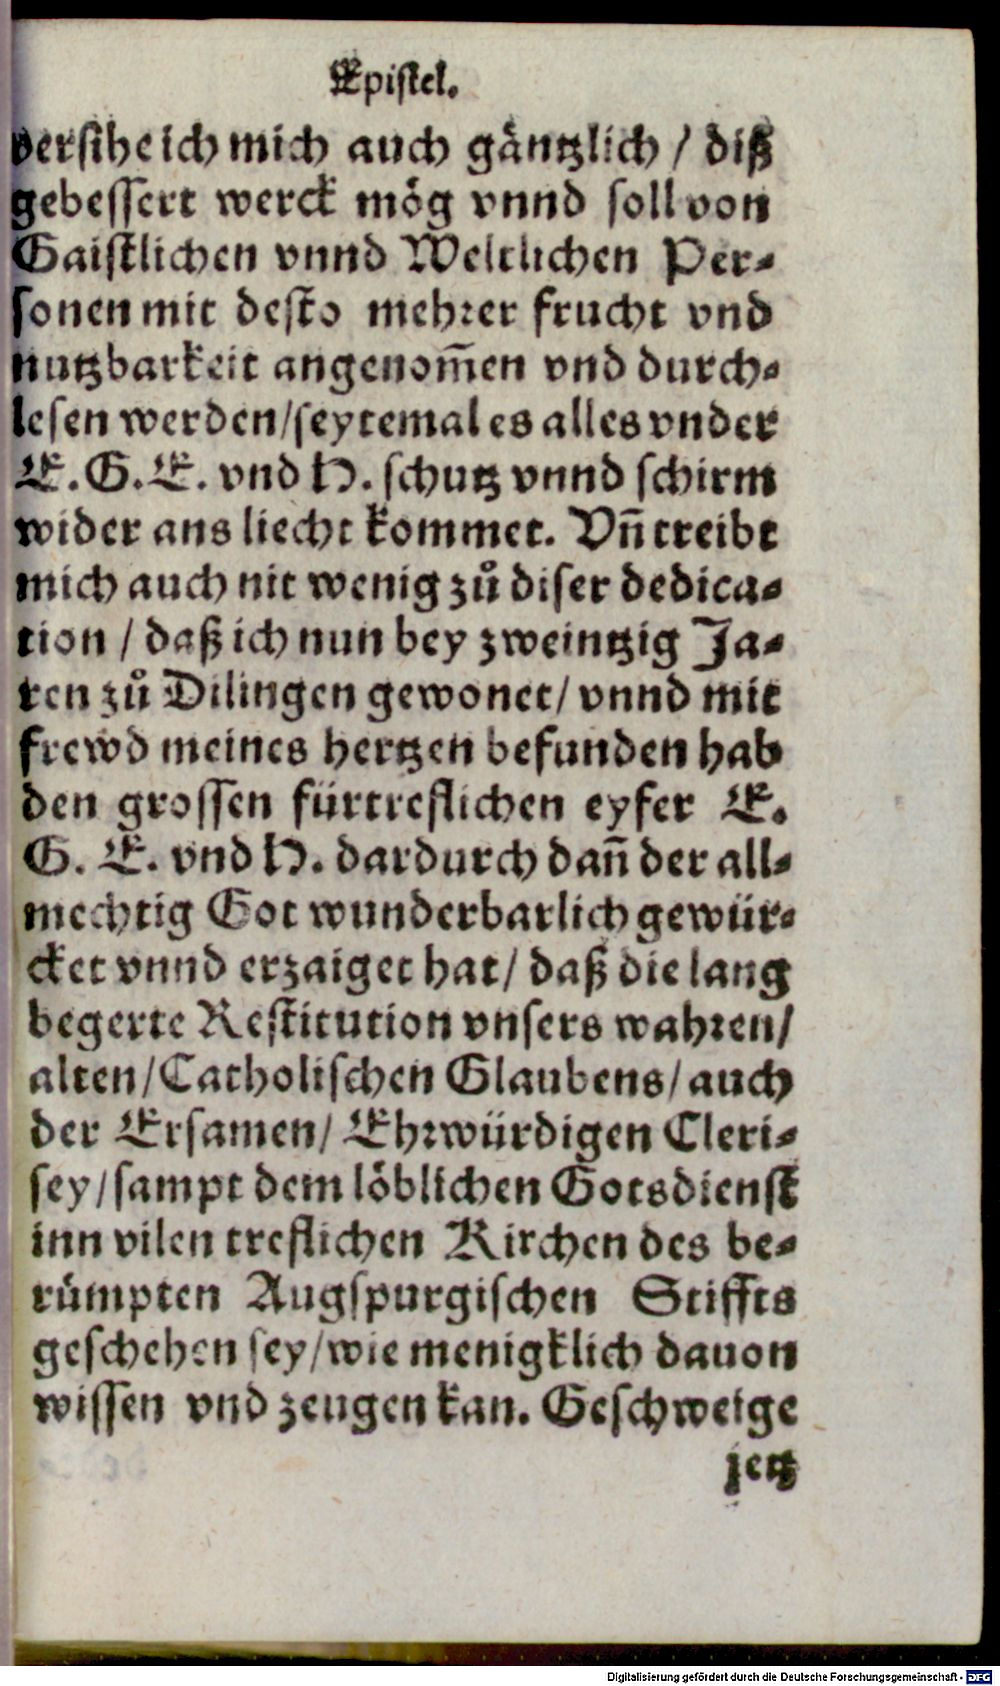 Epistel.
versihe ich mich auch gäntzlich / diß
gebessert werck mög vnnd soll von
Gaistlichen vnnd Weltlichen Per-
sonen mit desto mehrer frucht vnd
nutzbarkeit angenom̃en vnd durch-
lesen werden/seytemal es alles vnder
E. G. E. vnd H. schutz vnnd schirm
wider ans liecht kommet. Vñ treibt
mich auch nit wenig zů diser dedica-
tion / daß ich nun bey zweintzig Ja-
ren zů Dilingen gewonet/ vnnd mit
frewd meines hertzen befunden hab
den grossen fürtreflichen eyfer E.
G. E. vnd H. dardurch dañ der all-
mechtig Got wunderbarlich gewür-
cket vnnd erzaiget hat/ daß die lang
begerte Restitution vnsers wahren/
alten/Catholischen Glaubens/auch
der Ersamen/ Ehrwürdigen Cleri-
sey/sampt dem löblichen Gotsdienst
inn vilen treflichen Kirchen des be-
rümpten Augspurgischen Stiffts
geschehen sey/wie menigklich dauon
wissen vnd zeugen kan. Geschweige
jetz
Digitalisierung gefördert durch die Deutsche Forschungsgemeinschaft - DFG